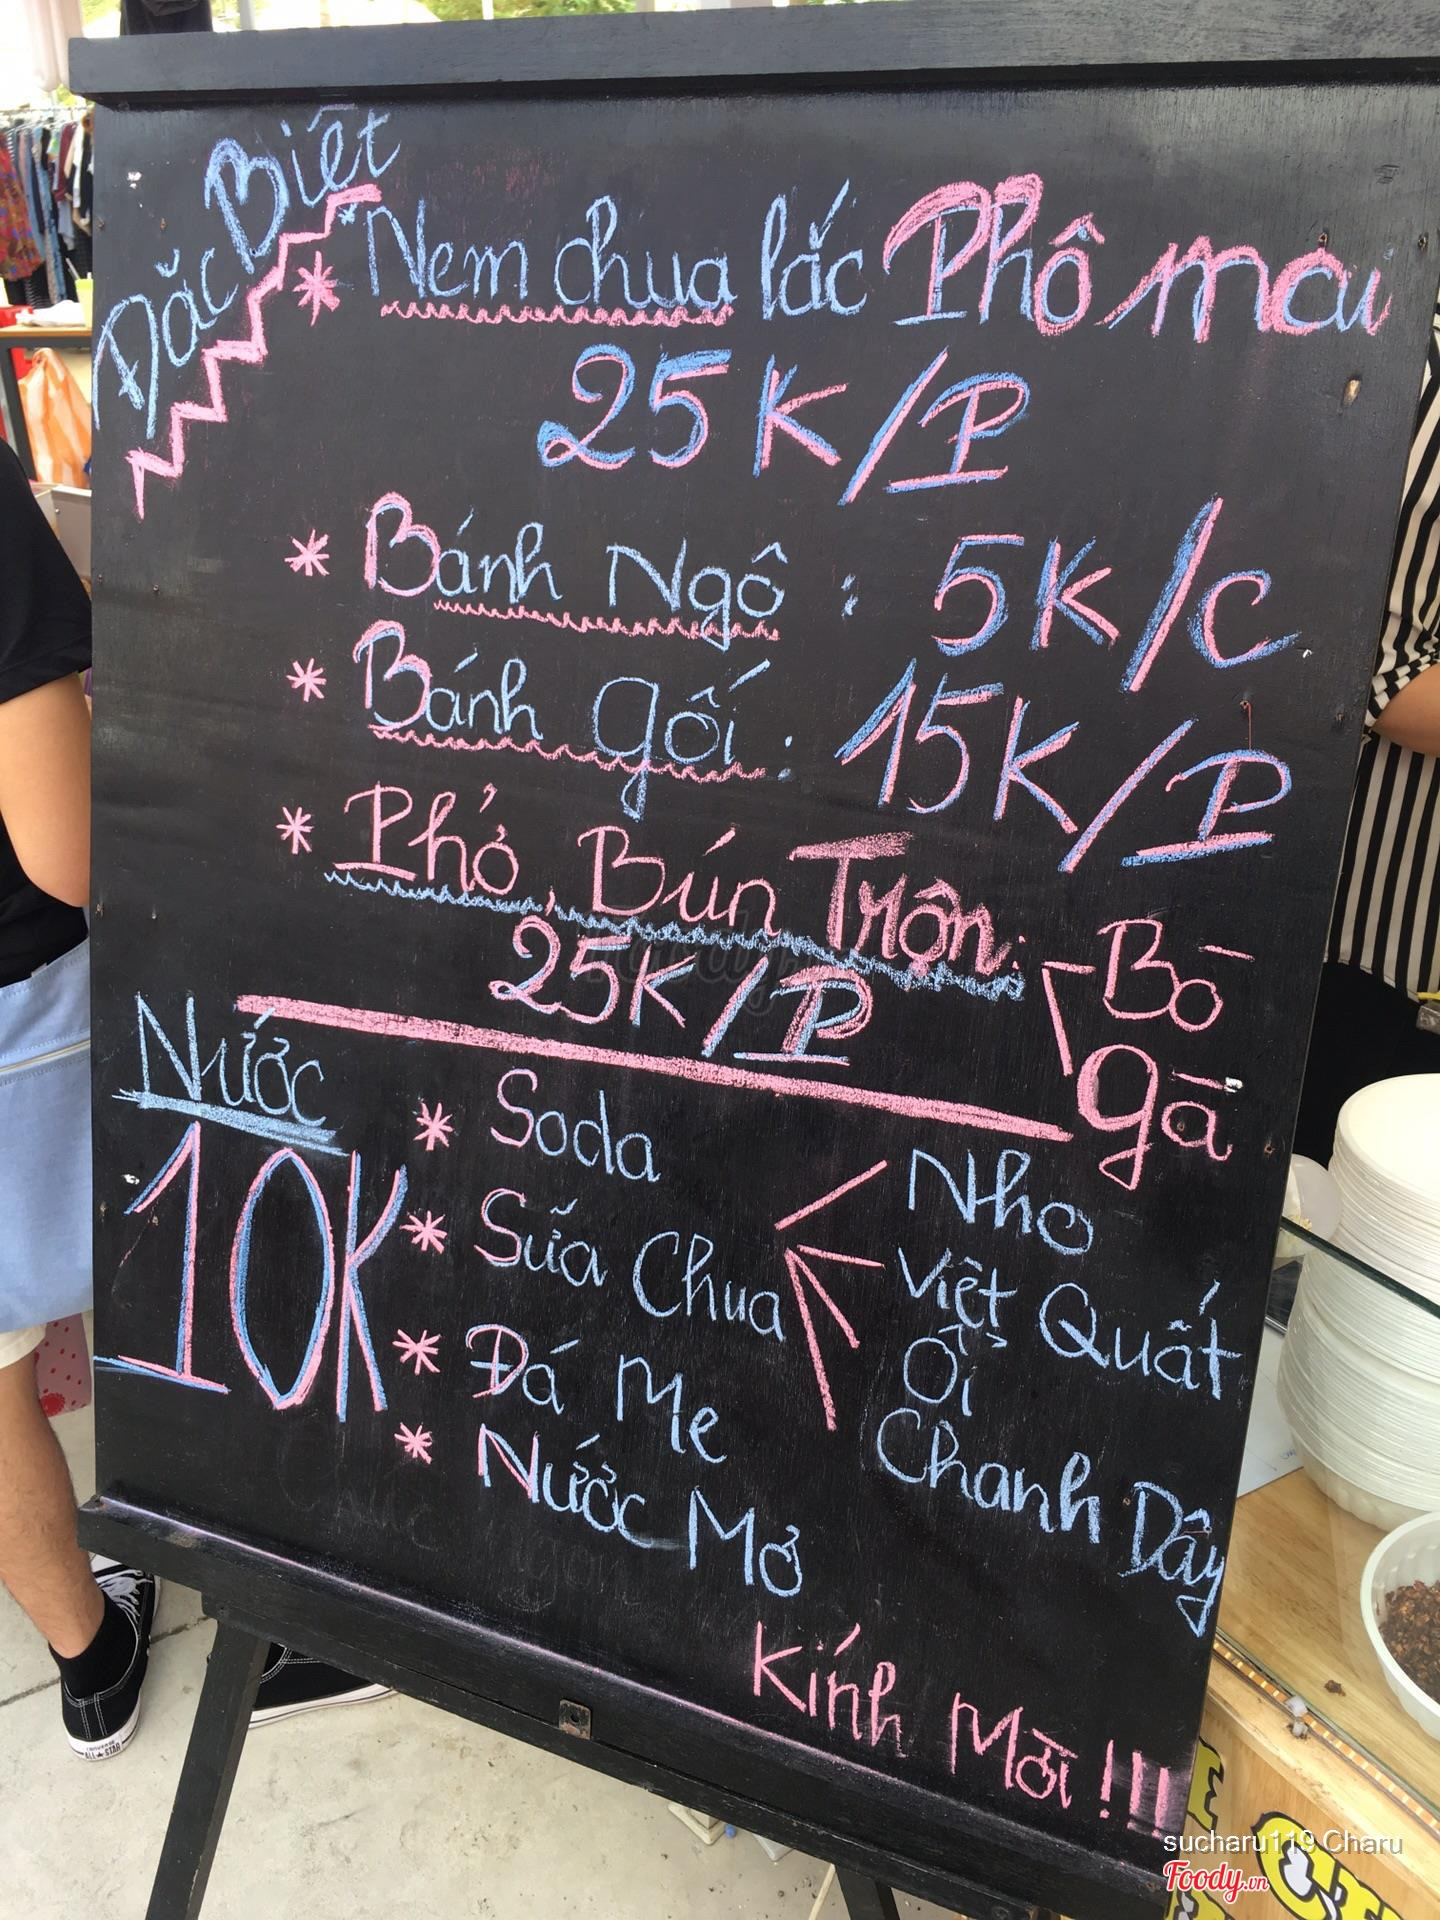 Đặc Biệt
* Nem chua lắc Phô mai
25K/P
* Bánh Ngô : 5K/C
* Bánh gối : 15K/P
* Phở, Bún Trộn: Bò
gà
25K/P
Nước
10K
* Soda
* Sữa Chua
Nho
Việt Quất
Ổi
Chanh Dây
* Đá Me
* Nước Mơ
Kính Mời !!!
CONVERSE
ALL STAR
sucharu119 Charu
Foody.vn